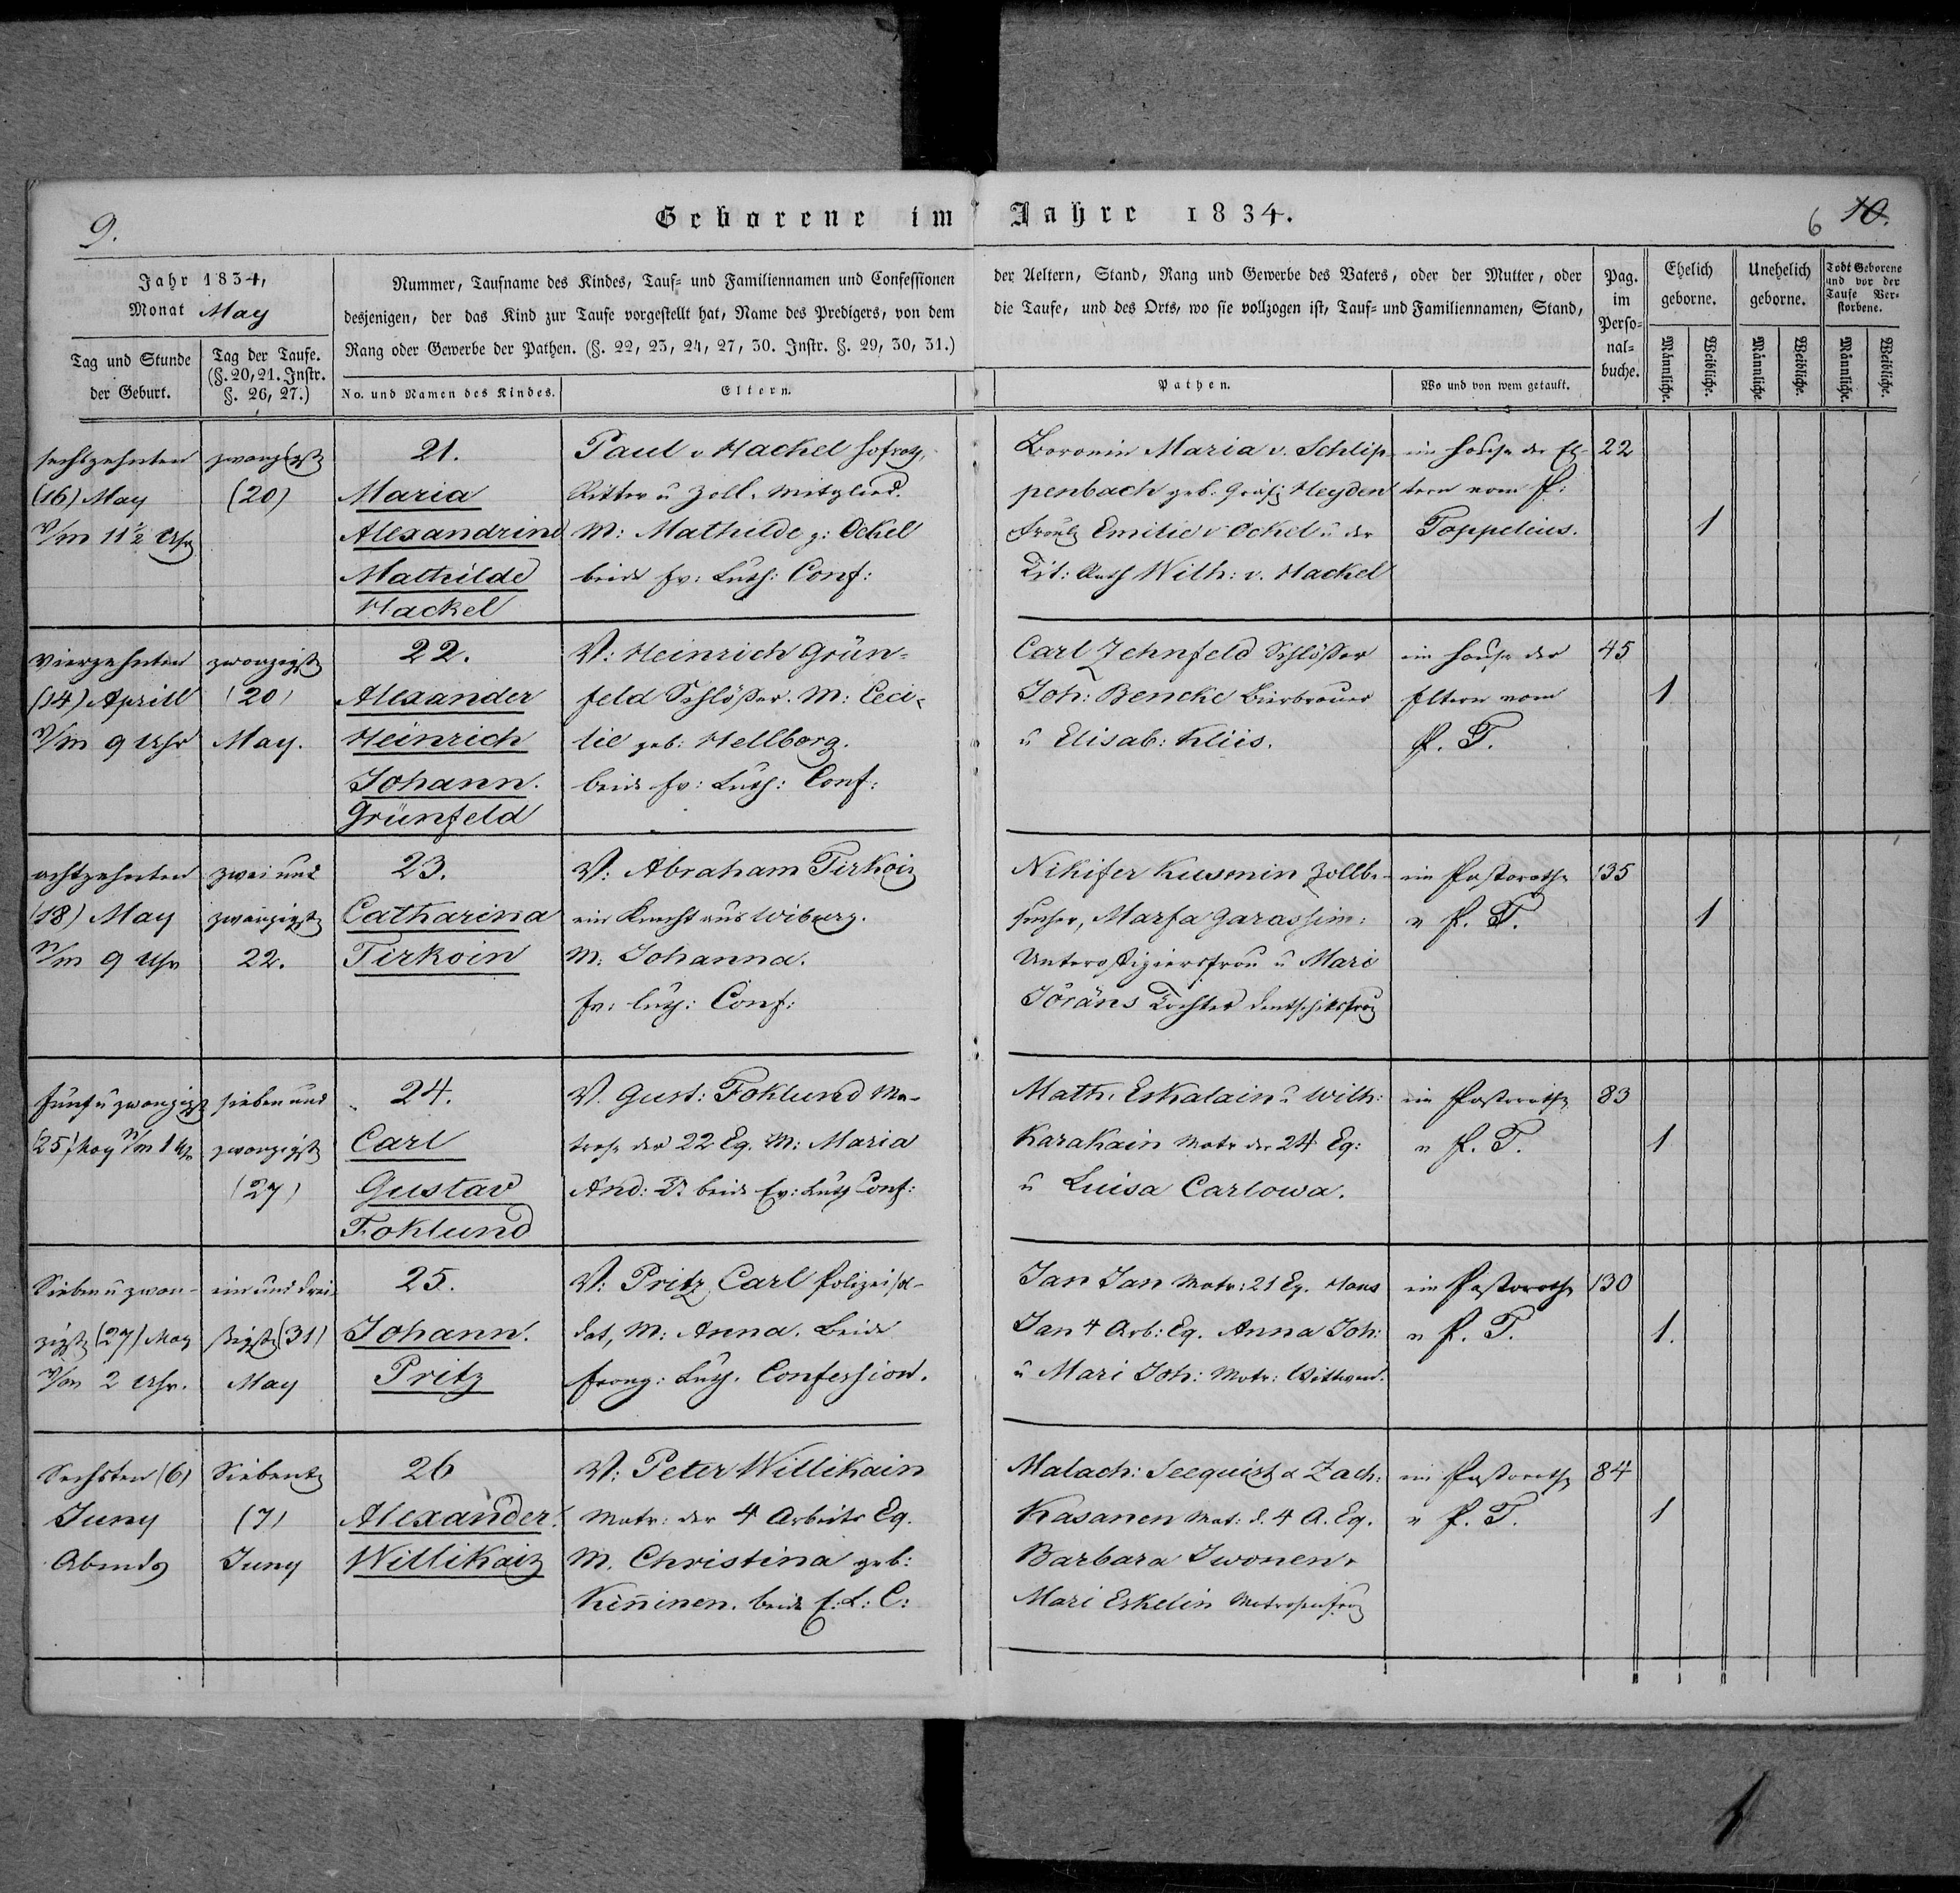 9.
Geborene im Jahre 1834.
6 10.
Jahr 1834,
Monat May
Tag und Stunde
der Geburt.
Tag der Taufe.
(§. 20, 21. Instr.
§. 26, 27.)
Nummer, Taufname des Kindes, Tauf- und Familiennamen und Confessionen
desjenigen, der das Kind zur Taufe vorgestellt hat, Name des Predigers, von dem
Rang oder Gewerbe der Pathen. (§. 22, 23, 24, 27, 30. Instr. §. 29, 30, 31.)
No. und Namen des Kindes.
Eltern.
der Aeltern, Stand, Rang und Gewerbe des Vaters, oder der Mutter, oder
die Taufe, und des Orts, wo sie vollzogen ist, Tauf- und Familiennamen, Stand,
Pathen.
Wo und von wem getauft.
Pag.
im
Perso-
nal-
buche.
Ehelich
geborne.
Unehelich
geborne.
Todt Geborene
und vor der
Taufe Ver-
storbene.
Männliche.
Weibliche.
Männliche.
Weibliche.
Männliche.
Weibliche.
sechszehnten
(16) May
V/m 11½ Uhr
zwanzigst
(20)
21.
Maria
Alexandrine
Mathilde
Hackel
Paul v Hackel Hofrath,
Ritter u Zoll. Mitglied.
M: Mathilde g: Ockel
beide Ev: Luth: Conf:
Baronin Maria v. Schlip
penbach geb. Gräfin Heyden
Fräul Emilie v Ockel u der
Tit: Rath Wilh: v. Hackel
im Hause der El
tern vom P:
Poppelius.
22
1
vierzehnten
(14) Aprill
V/m 9 Uhr
zwanzigst
(20)
May.
22.
Alexander
Heinrich
Johann.
Grünfeld
V: Heinrich Grün-
feld Schlößer. M: Ceci-
lie geb: Hellborg.
beide Ev: Luth: Conf:
Carl Zehnfeld Schlößer
Joh: Bencke Bierbrauer
u Elisab: Kliis.
im Hause der
Eltern vom
P. P.
45
1
achtzehnten
(18) May
N/m 9 Uhr
zwei und
zwanzigst
22.
23.
Catharina
Tirkoin
V: Abraham Tirkoin
ein Knecht aus Wiburg.
M. Johanna.
Ev: Luth: Conf:
Nikifer Kusmin Zollbe-
sucher, Marfa Garassim:
Unteroffiziersfrau u Mari
Jöräns Tochter
im Pastorathe
v P. P.
135
1
fünf u zwanzigst
(25) May N/m 1 Uhr
sieben und
zwanzigst
(27)
24.
Carl
Gustav
Foklund
V. Gust: Foklund Ma-
trose der 22 Eq. M: Maria
And: T. beide Ev: Luth Conf:
Math. Eskalain u Wilh:
Karakain Matr der 24 Eq:
u Luisa Carlowa.
im Pastorathe
v P. P.
83
1
Sieben u zwan-
zigst (27) May
V/m 2 Uhr.
ein und drei
ßigst (31)
May
25.
Johann.
Pritz
V: Pritz Carl Polizeisol-
dat, M: Anna. Beide
Evang: Luth. Confession.
Jan Jan Matr: 21 Eq. Hans
Jan 4 Arb: Eq. Anna Joh:
u Mari Joh: Matr: Wittwen.
im Pastorathe
v P. P.
130
1.
Sechsten (6)
Juny
Abends
Siebente
(7)
Juny
26
Alexander.
Willikain
V: Peter Willikain
Matr: der 4 Arbeits Eq.
M. Christina geb:
Kiñinen. beide E: L: C:
Malach: Seequist & Zach:
Kasanen Mat: d. 4 A. Eq.
Barbara Iwonen,
Mari Eskelin Matrosenfrau
im Pastorathe
v P. P.
84
1